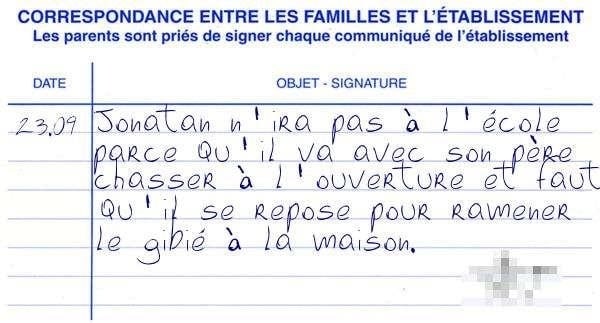 CORRESPONDANCE ENTRE LES FAMILLES ET L'ÉTABLISSEMENT
Les parents sont priés de signer chaque communiqué de l'établissement
DATE OBJET - SIGNATURE
23.09 Jonatan n'ira pas à l'école
parce qu'il va avec son père
chasser à l'ouverture et faut
qu'il se repose pour ramener
le gibié à la maison.